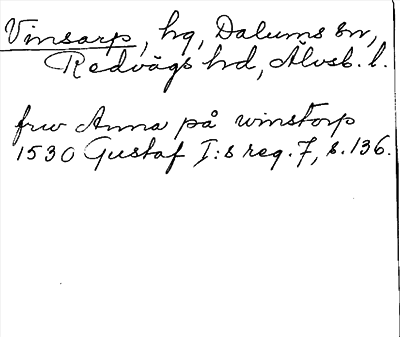 Vinsarp, hg, Dalums sn,
Redvägs hd, Älvsb. l.
frw Anna på winstorp
1530 Gustaf I:s reg. 7, s. 136.